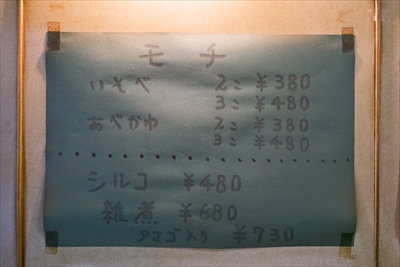 モチ
いそべ 2こ ¥380
3こ ¥480
あべかわ 2こ ¥380
3こ ¥480
シルコ ¥480
雑煮 ¥680
タマゴ入り ¥730